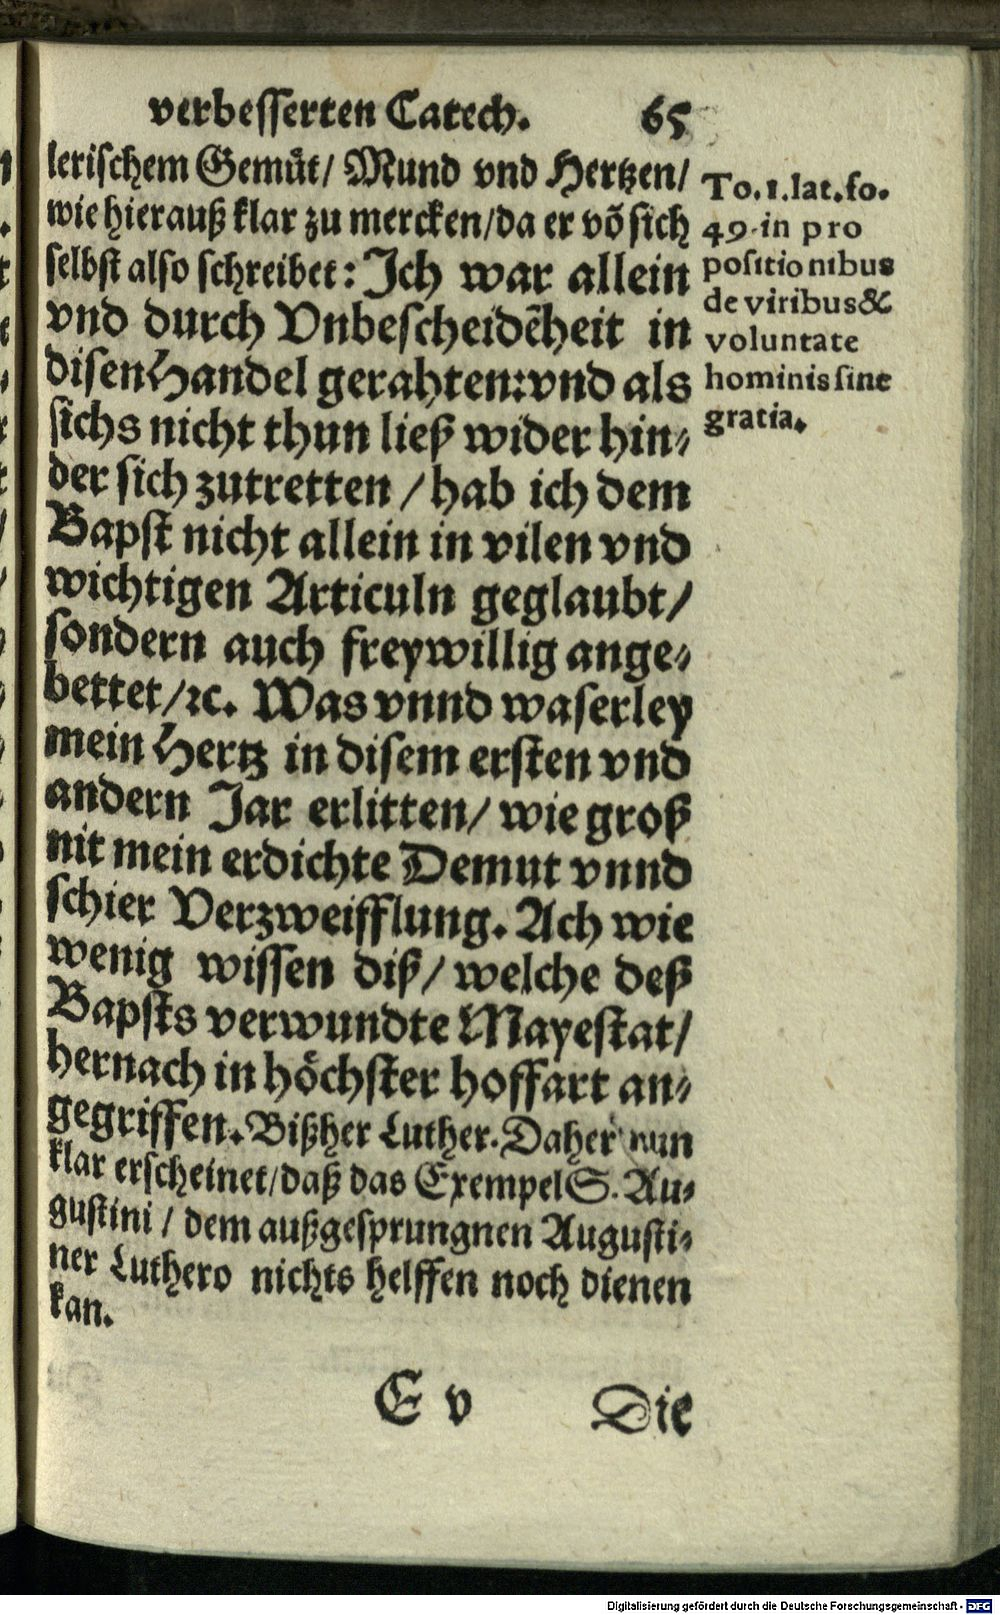 verbesserten Catech. 65
lerischem Gemüt/ Mund vnd Hertzen/
wie hierauß klar zu mercken/da er võ sich
selbst also schreibet: Ich war allein
vnd durch Vnbescheidẽheit in
disen Handel gerahten: vnd als
sichs nicht thun ließ wider hin-
der sich zutretten / hab ich dem
Bapst nicht allein in vilen vnd
wichtigen Articuln geglaubt/
sondern auch freywillig ange-
bettet/ꝛc. Was vnnd waserley
mein Hertz in disem ersten vnd
andern Jar erlitten/ wie groß
nit mein erdichte Demut vnnd
schier Verzweifflung. Ach wie
wenig wissen diß/ welche deß
Bapsts verwundte Mayestat/
hernach in höchster hoffart an-
gegriffen. Bißher Luther. Daher nun
klar erscheinet/daß das Exempel S. Au-
gustini / dem außgesprungnen Augusti-
ner Luthero nichts helffen noch dienen
kan.
To. 1. lat. fo.
49. in pro
positionibus
de viribus &
voluntate
hominis sine
gratia.
E v Die
Digitalisierung gefördert durch die Deutsche Forschungsgemeinschaft - DFG